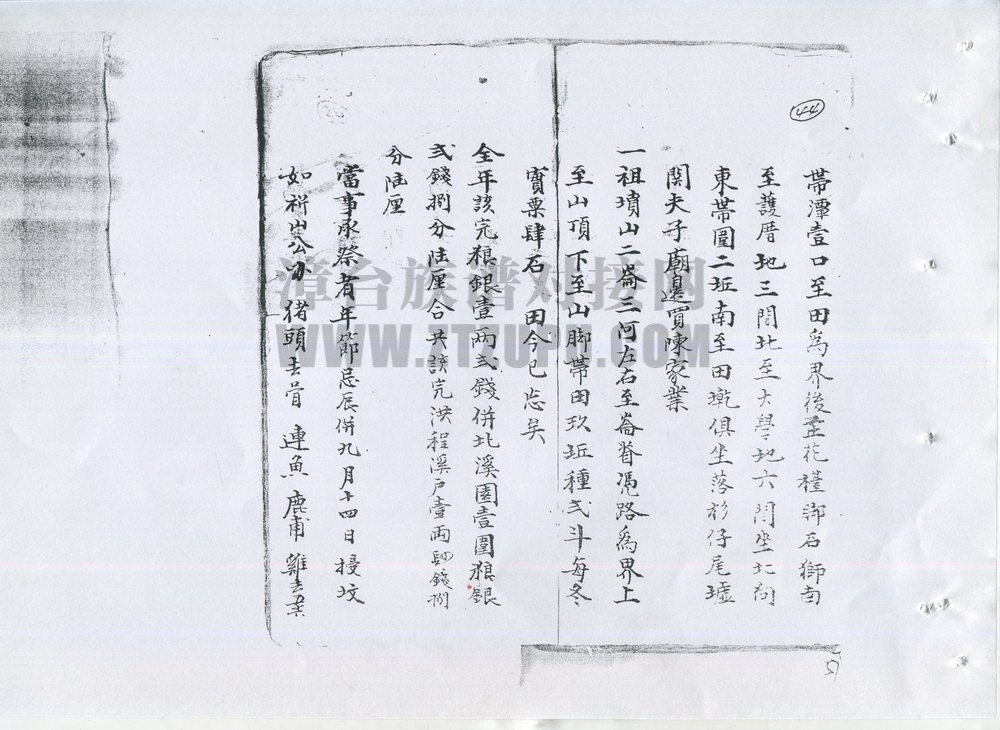 44
帶潭壹口至田為界後至花檯腳石獅南
至護厝地三間北至大學地六間坐北向
東帶園二坵南至田墘俱坐落杉仔尾墟
関夫子廟邊買陳家業
一祖墳山二崙三河左右至崙脊憑路為界上
至山頂下至山脚帶田玖坵種弍斗每冬
實粟肆石 田今已忘矣
全年該完粮銀壹両弍錢併北溪園壹圍粮銀
弍錢捌分陆厘合共該完洪程溪户壹両肆錢捌
分陆厘
當事承祭者年節忌辰併九月十四日授坟
如祈山公 猪頭去骨 連魚 鹿脯 雞
漳台族谱对接网
WWW.JTUPU.COM